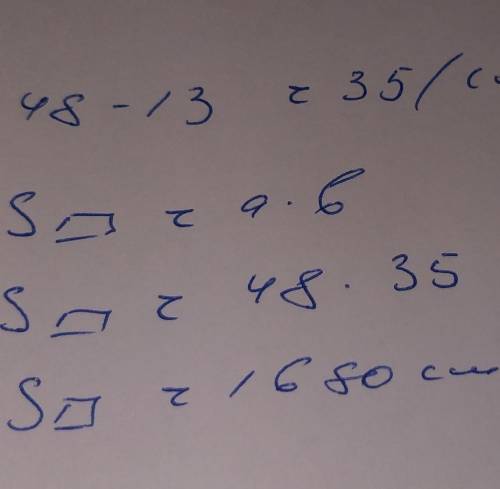 48 - 13 = 35 (с
S▭ = a · b
S▭ = 48 · 35
S▭ = 1680 см